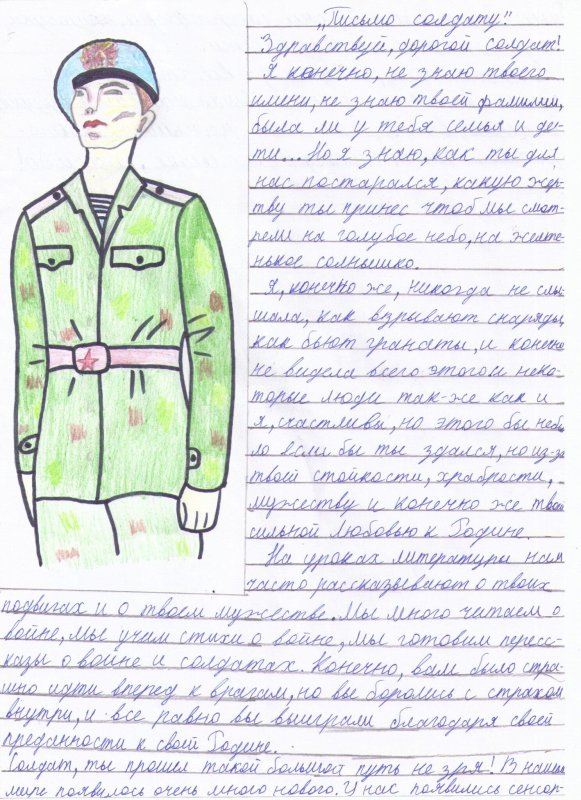 „Письмо солдату."
Здравствуй, дорогой солдат!
Я конечно, не знаю твоего
имени, не знаю твоей фамилии,
была ли у тебя семья и де-
ти... Но я знаю, как ты для
нас постарался, какую жер-
тву ты принес чтоб мы смот-
рели на голубое небо, на желте-
нькое солнышко.
Я, конечно же, никогда не слы-
шала, как взрывают снаряды,
как бьют гранаты, и конечно
не видела всего этого и неко-
торые люди так-же как и
я, счастливы, но этого бы небы-
ло если бы ты здался, но из-за
твоей стойкости, храбрости,
мужеству и конечно же твоей
сильной любовью к Родине.
На уроках литературы нам
часто рассказывают о твоих
подвигах и о твоем мужестве. Мы много читаем о
войне, мы учим стихи о войне, мы готовим перес-
казы о войне и солдатах. Конечно, вам было стра-
шно идти вперед к врагам, но вы боролись с страхом
внутри, и все равно вы выиграли благодаря своей
преданности к своей Родине.
Солдат, ты прошел такой большой путь не зря! В нашем
мире появилось очень много нового. У нас появились сенсор-